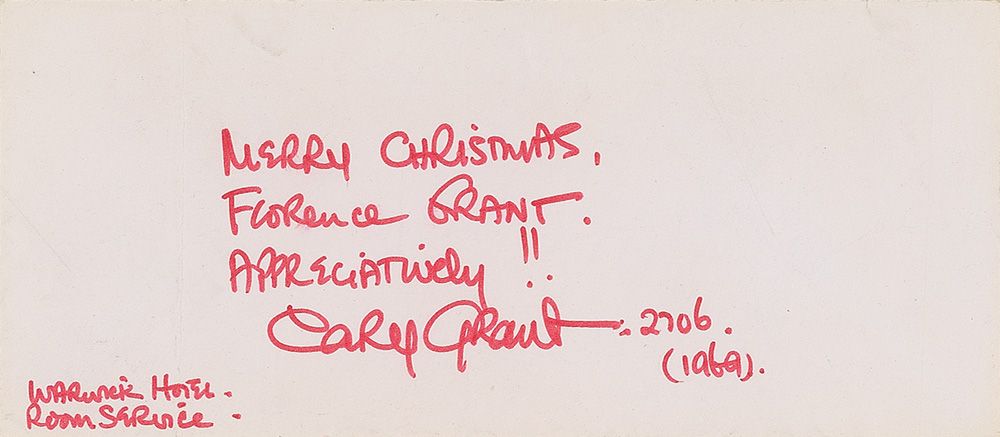 MERRY CHRISTMAS,
Florence GRANT.
APPRECIATIVELY!!
Cary Grant: 2706.
(1969).
WARWICK HOTEL.
ROOM SERVICE.